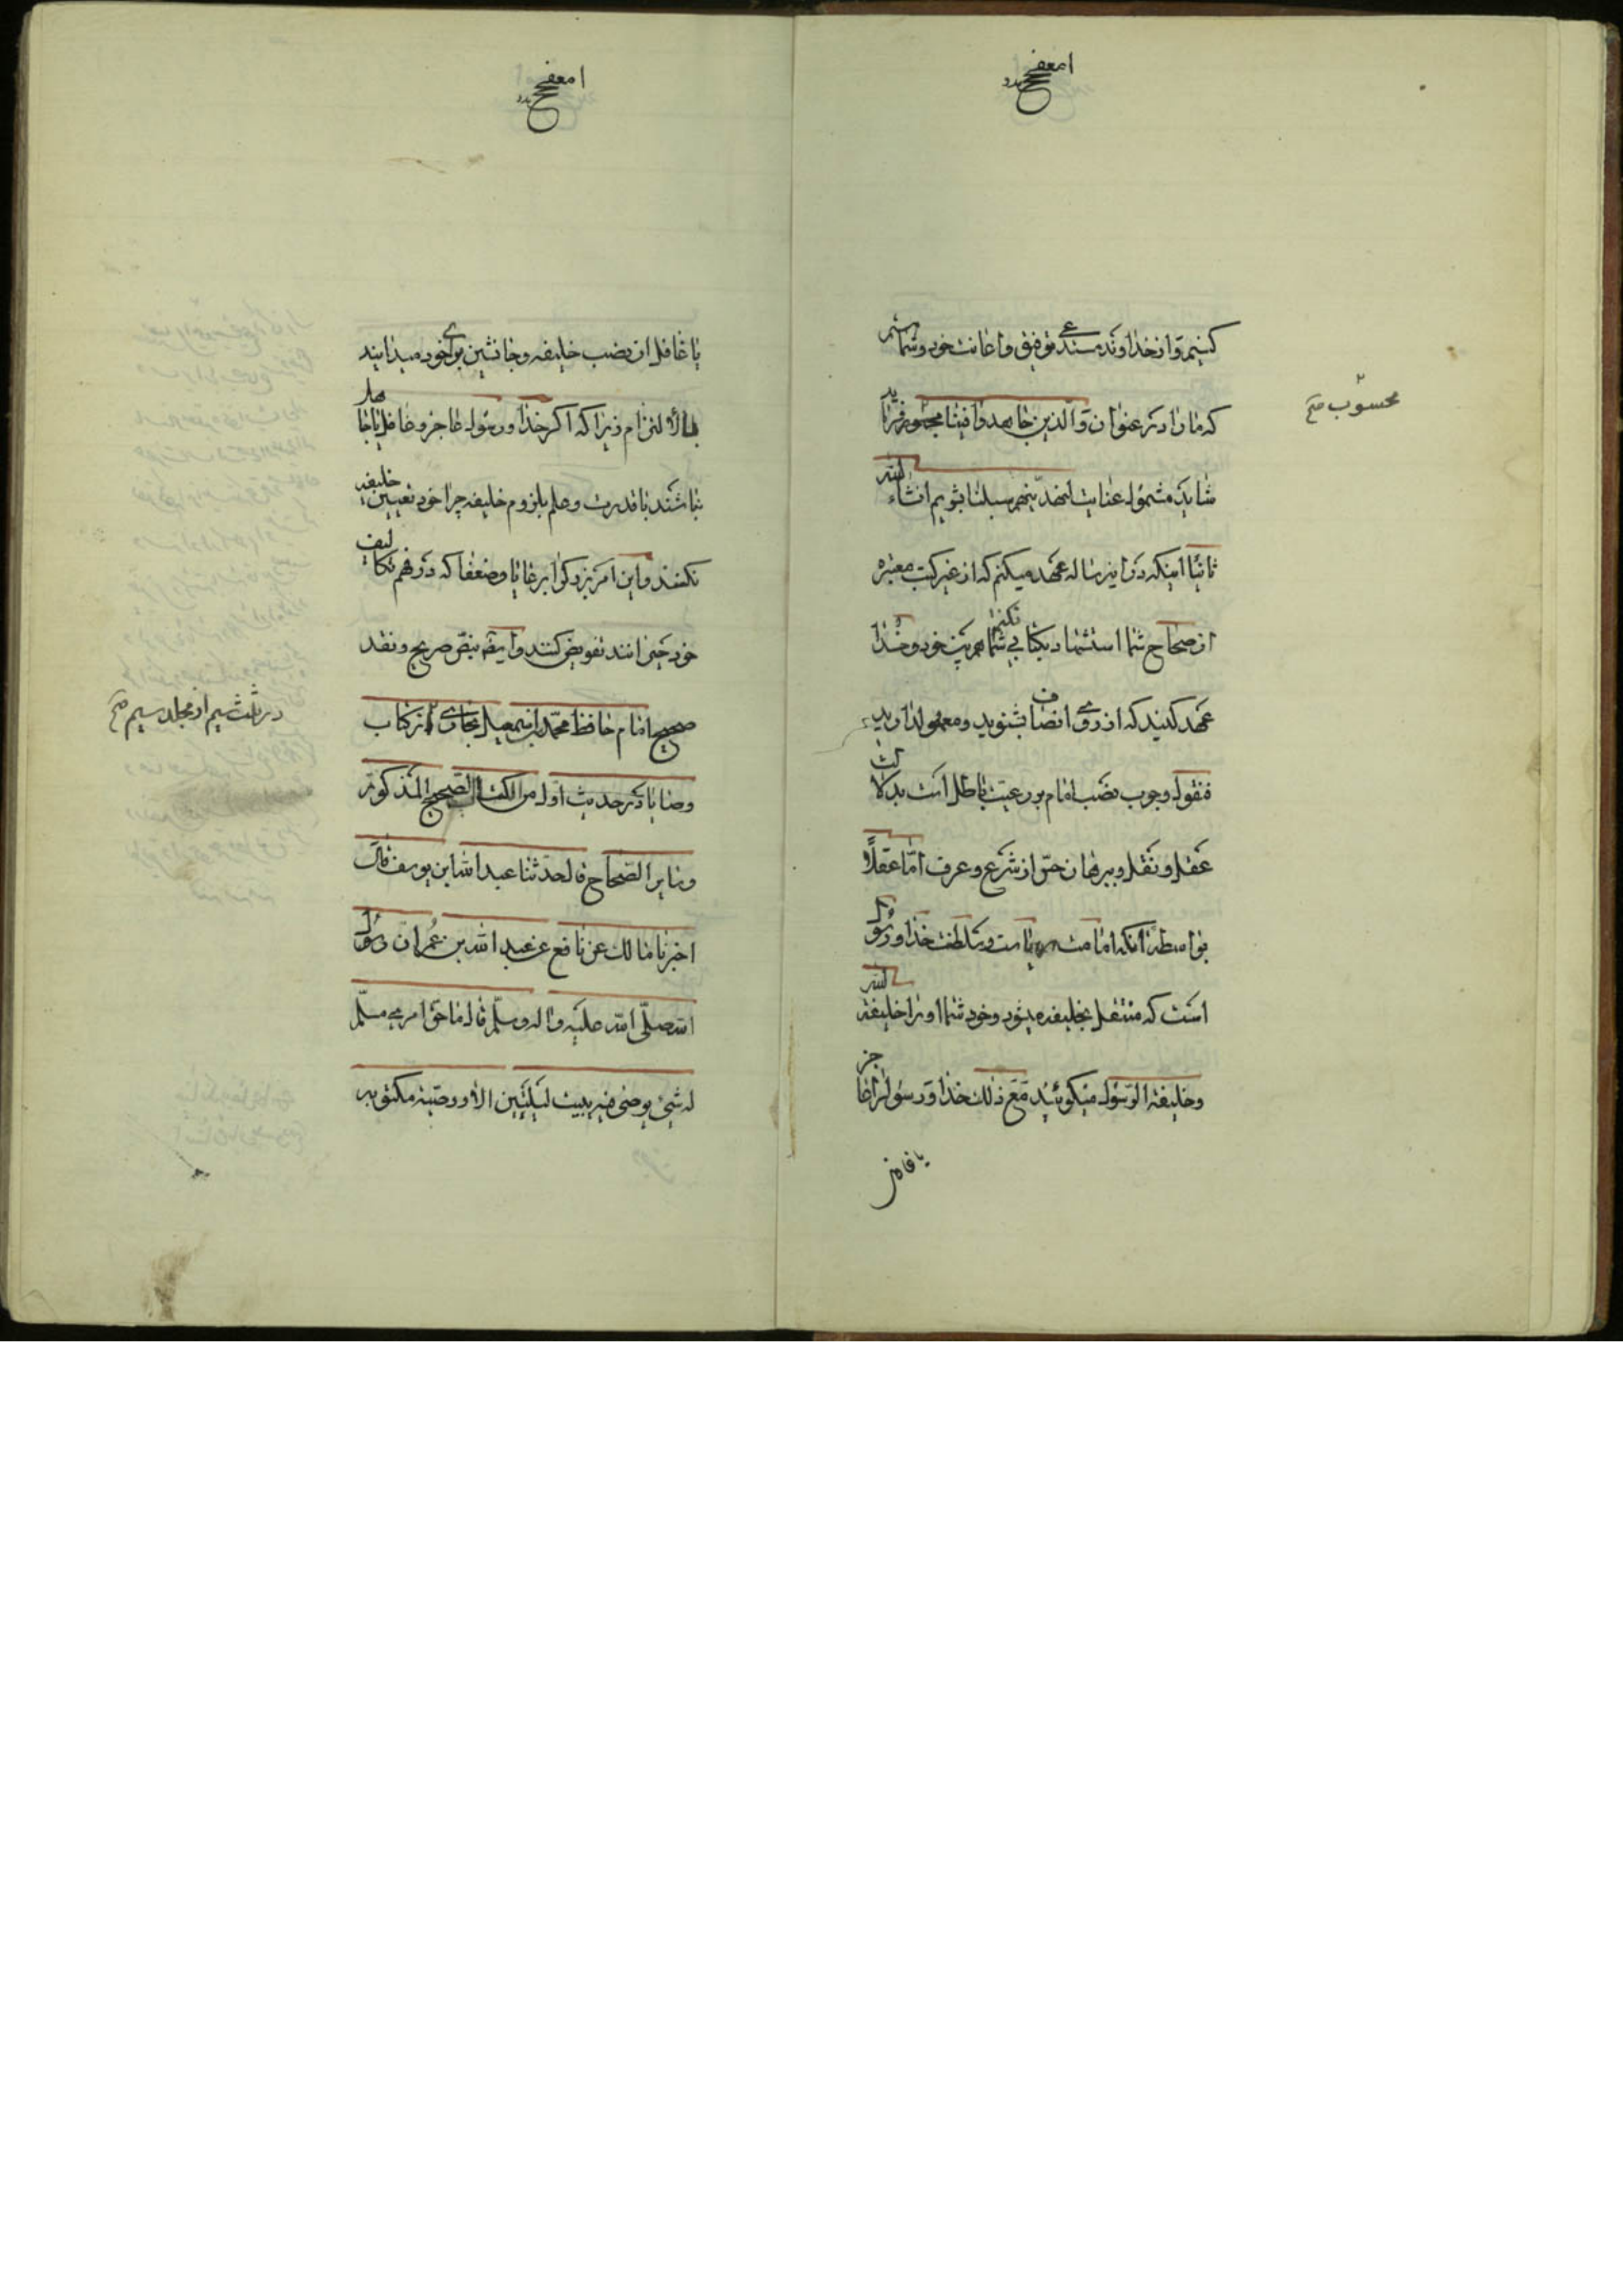 کنیم و از خداوند مستدعی توفیق و اعانت خود و شما هستیم
که ما را در عنوان و الذین جاهدوا فینا محسوب فرماید
محسوب صح
شاید مشمول عنایت لنهدینهم سبلنا بشویم انشاء الله
ثانیا اینکه در این رساله عهد میکنم که از غیر کتب معتبره
از صحاح شما استشهاد بکتابی نکنم شما هم بین خود و خدا
عهد کنید که از روی انصاف بشنوید و معمول دارید
فنقول وجوب نصب امام بر رعیت باطل است بدلالت
عقل و نقل و برهان حق از شرع و عرف امّا عقلًا
بواسطه آنکه امامت و سلطنت خدا و رسول
است که منتقل بخلیفه میشود و خود شما او را خلیفة الله
و خلیفة الرسول میگوئید مع ذلک خدا و رسول را عاجز
یا غافل از نصب خلیفه و جانشین برای خود میدانید
بالالتزام زیرا که اگر خدا و رسول عاجز و غافل یا جاهل
نباشند با قدرت و علم بلزوم خلیفه چرا خود تعیین خلیفه
نکنند و این امر بزرگ را برعایا و ضعفا که در فهم تکالیف
خود حیرانند تفویض کنند و ایضه بنصّ صریح و نقد
صحیح امام حافظ محمّد بن اسمعیل بخاری از کتاب
در ثلث سیم از مجلد سیم صح
وصایا در حدیث اول من الکتاب الصحیح المذکور
و سایر الصّحاح قال حدثنا عبد الله ابن یوسف قال
اخبرنا مالک عن نافع عن عبد الله بن عُمر ان رسول
الله صلّی الله علیه و اله و سلّم قال ما حق امرء مسلّم
له شیء یوصی فیه یبیت لیلتین الا و وصیته مکتوبه